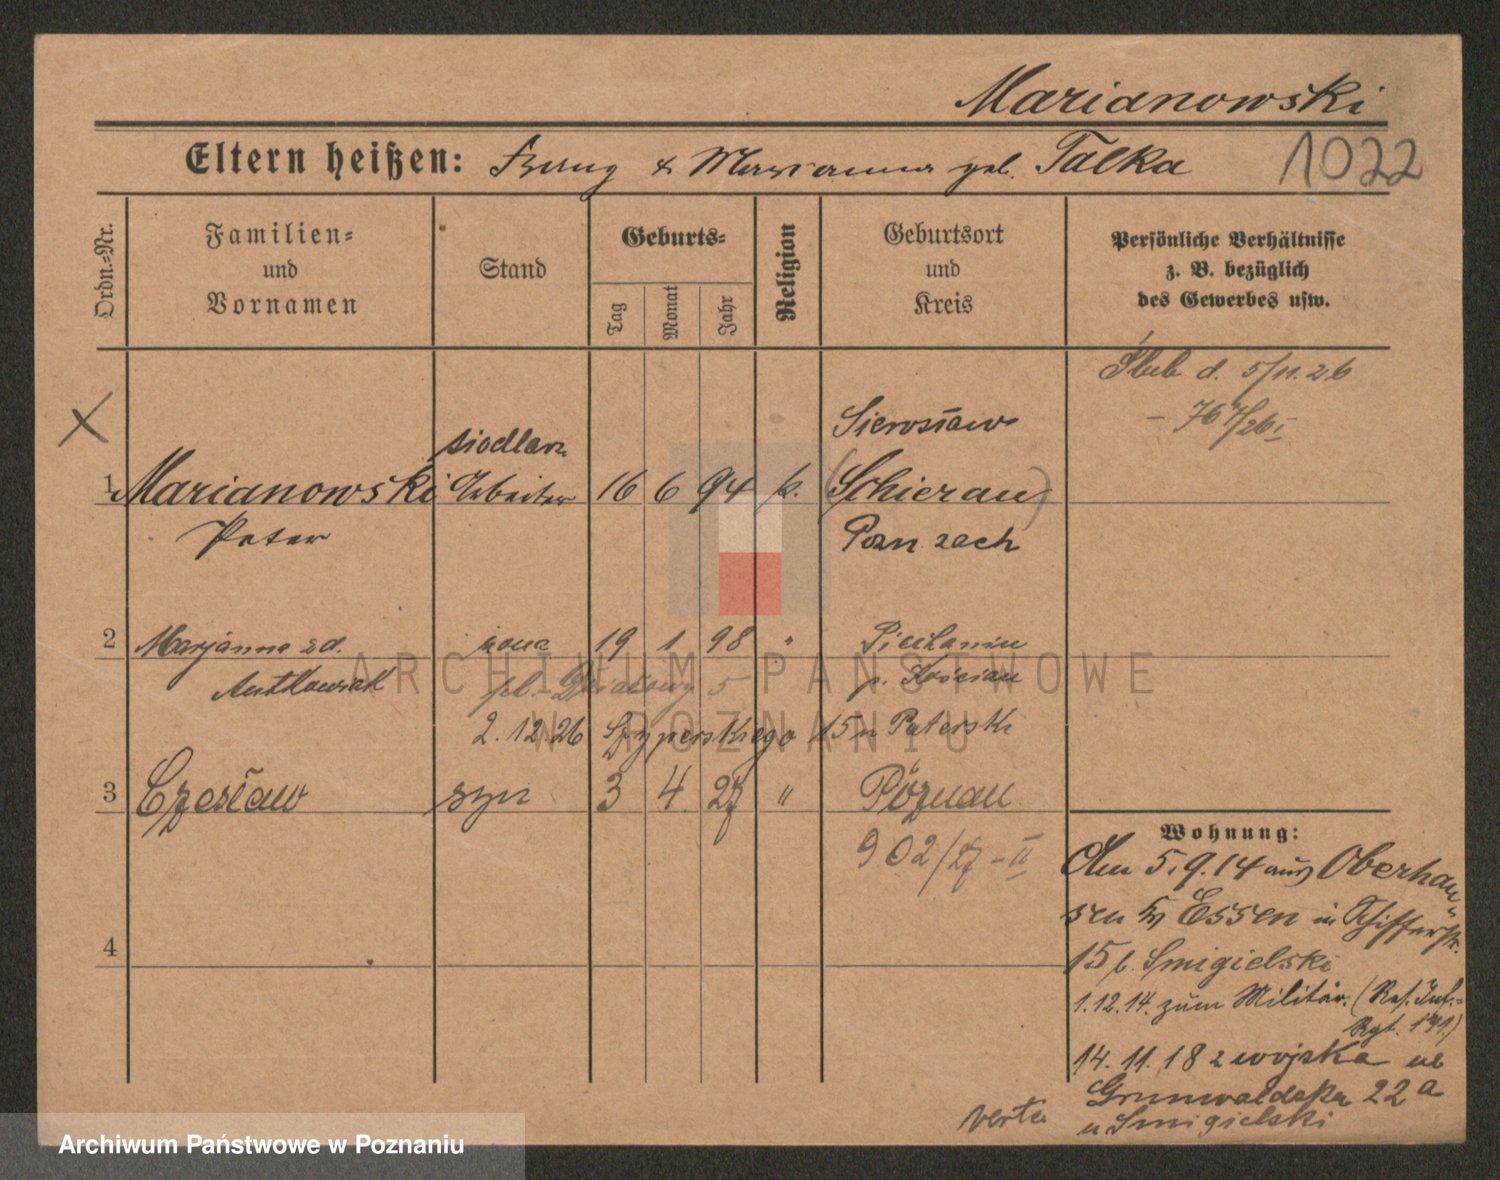 Marianowski
Eltern heißen: Franz & Marianna geb. Talka
1022
Ordn.-Nr.
Familien-
und
Vornamen
Stand
Geburts-
Tag
Monat
Jahr
Religion
Geburtsort
und
Kreis
Persönliche Verhältnisse
z. B. bezüglich
des Gewerbes usw.
Ślub d. 5/11.26
- 767/26 I
X
siodlarz
Sierosław
1 Marianowski Arbeiter 16 6 94 k. (Schierau)
Peter
Pozn zach
2 Marjanna zd. żona 19 1 98 " Piechanin
Antkowiak
pl. Działowy 5
p. Kościan
2.12.26 Szyperskiego 15 u Paterski
3 Czesław syn 3 4 27 " Poznań
902/27 - II
4
Wohnung:
Am 5.9.14 aus Oberhau-
sen Kr Essen in Schifferstr.
15 b. Smigielski
1.12.14. zum Militär. (Res. Inf.-
Rgt.
14.11.18 z wojska ul
Grunwaldzka 22a
u Smigielski
verte
ARCHIWUM PAŃSTWOWE
W POZNANIU
Archiwum Państwowe w Poznaniu